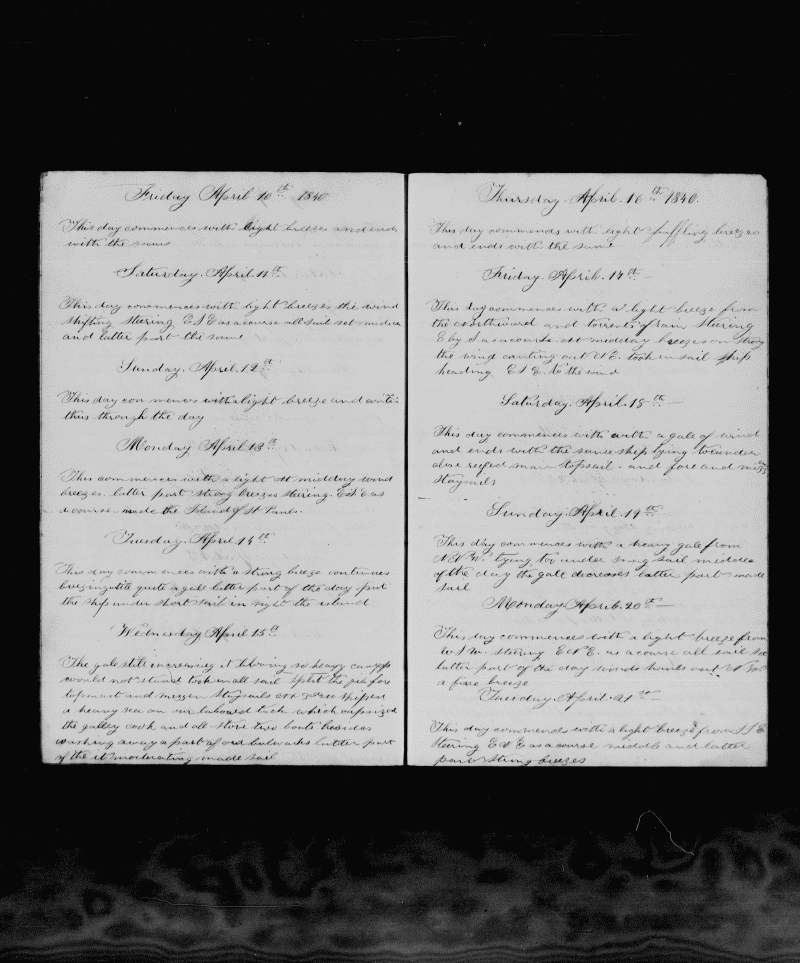 Friday April 10th 1840
This day commences with light breezes and ends
with the same
Saturday. April 11th
This day commences with light breezes the wind
shifting steering E S E as a course all sail set middle
and latter part the same
Sunday. April. 12th
This day commences with a light breeze and contin
thus through the day
Monday April 13th
This commences with a light at midday wind
breezes. latter part strong breezes steering. as
a course. made the Island of St Pauls.
Tuesday. April 14th
This day commences with a strong breeze continues
quite a gale latter part of the day put
the ship under short sail in sight the island
Wednesday April 15th
The gale still increasing it blowing so heavy canvass
would not stand took in all sail split the jib fore
topmast and mizzen staysails at shipped
a heavy sea on our labourd tack which capsized
the galley cook and all stove two boats besides
washing away a part of our bulwarks latter part
of the it moderating made sail
Thursday. April. 16th 1840.
This day commences with light baffling breezes
and ends with the same
Friday. April. 17th
This day commences with a light breeze from
the northward and torrents of rain steering
E by S as a course at midday breezes on strong
the wind canting out took in sail ship
heading E S E. to the wind
Saturday. April. 18th
This day commences with with a gale of wind
and ends with the same ship lying to under
close reefed main topsail. and fore and mizz
staysails
Sunday. April. 19th
This day commences with a heavy gale from
N.N.W. lying too under snug sail middle
of the day the gale decreases latter part made
sail
Monday April. 20th
This day commences with a light breeze from
W.S.W. steering as a course all sail set
latter part of the day winds hauls out
a fine breeze
Tuesday. April. 21st
This day commences with a light breeze from S S E
steering as a course middle and latter
part strong breezes